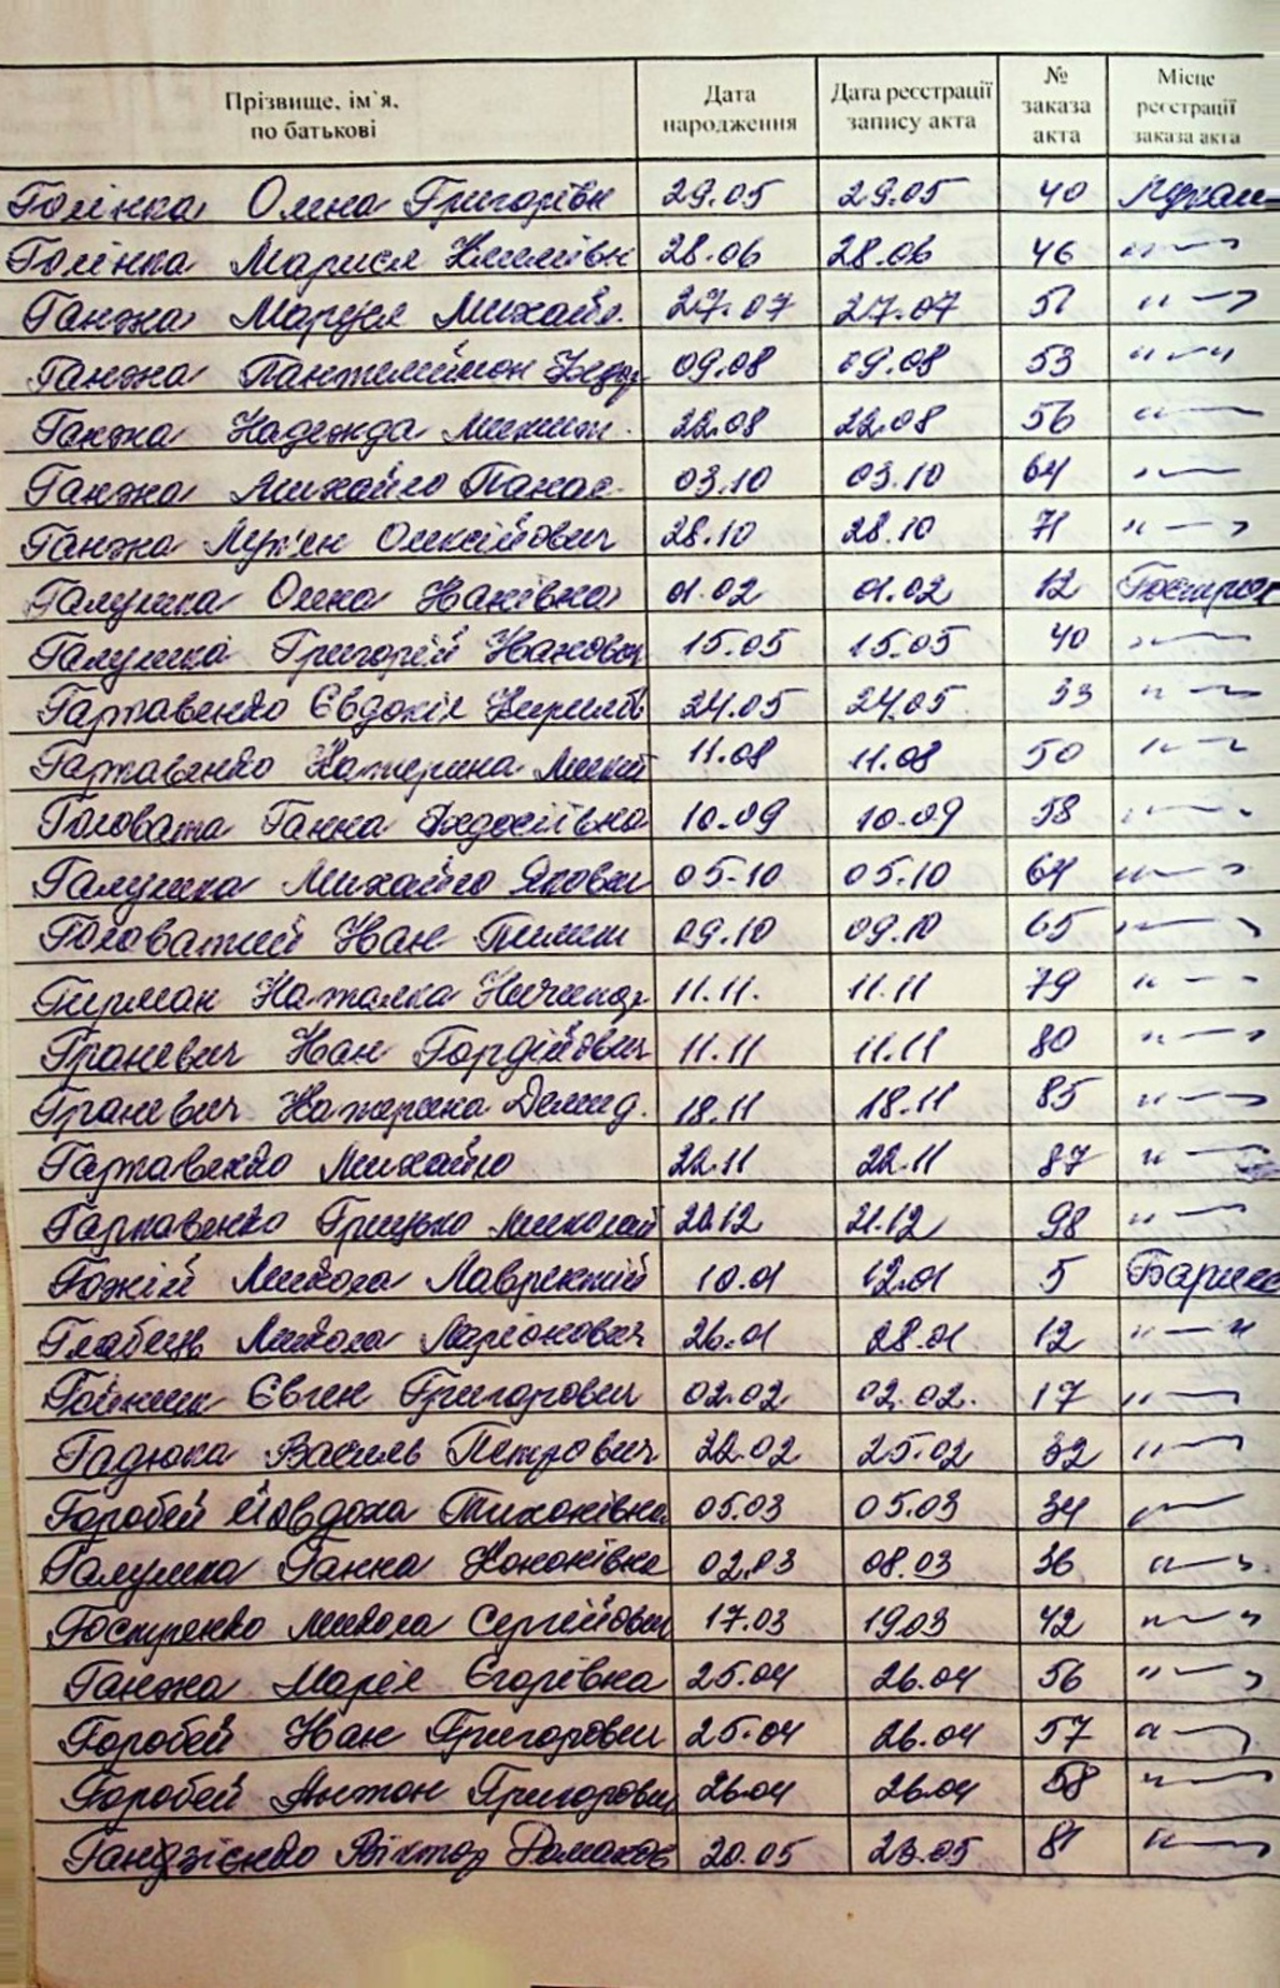 Прізвище, ім`я, по батькові Дата народження Дата реєстрації запису акта № заказа акта Місце реєстрації заказа акта
Голінка Олена Григорівн 29.05 29.05 40
Голінка Марися Климівн 28.06 28.06 46 "—"
Ганжа Маруся Михайл. 27.07 27.07 51 "—"
Ганжа Пантелеймон Федор 09.08 09.08 53 "—"
Ганжа Надежда 22.08 22.08 56 "—"
Ганжа Михайло Панас. 03.10 03.10 64 "—"
Ганжа Лук'ян Олексійович 28.10 28.10 71 "—"
Галушка Олена Іванівна 01.02 01.02 12
Галушка Григорій Іванович 15.05 15.05 40 "—"
Гаркавенко Євдокія Кирилів 24.05 24.05 33 "—"
Гаркавенко Катерина Микит 11.08 11.08 50 "—"
Головата Ганна Федосіївна 10.09 10.09 58 "—"
Галушка Михайло Якович 05.10 05.10 64 "—"
Головатий Іван Пилип 09.10 09.10 65 "—"
Гирман Наталка Ничипор 11.11. 11.11 79 "—"
Граневич Іван Гордійович 11.11 11.11 80 "—"
Граневич Катерина Демид. 18.11 18.11 85 "—"
Гаркавенко Михайло 22.11 22.11 87 "—"
Гаркавенко Грицько Миколай 21.12 21.12 98 "—"
Гожій Микола Лаврентій 10.01 12.01 5
Микола Ларіонович 26.01 28.01 12 "—"
Євген Григорович 02.02 02.02. 17 "—"
Гадюка Василь Петрович 22.02 25.02 32 "—"
Горобей Йовдоха Тихонівна 05.03 05.03 34 "—"
Галушка Ганна Кононівна 02.03 08.03 36 "—"
Гостренко Микола Сергійович 17.03 19.03 42 "—"
Ганжа Марія Єгорівна 25.04 26.04 56 "—"
Горобей Іван Григорович 25.04 26.04 57 "—"
Горобей Антон Григорович 26.04 26.04 58 "—"
Гандзієнко Віктор 20.05 23.05 81 "—"